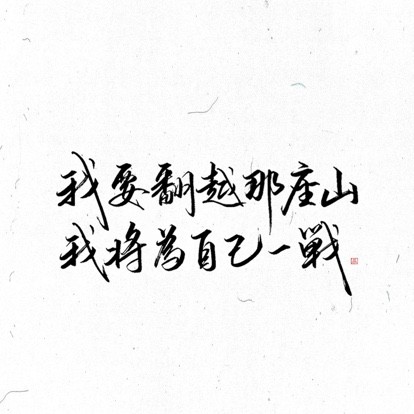 我要翻越那座山
我将為自己一戦